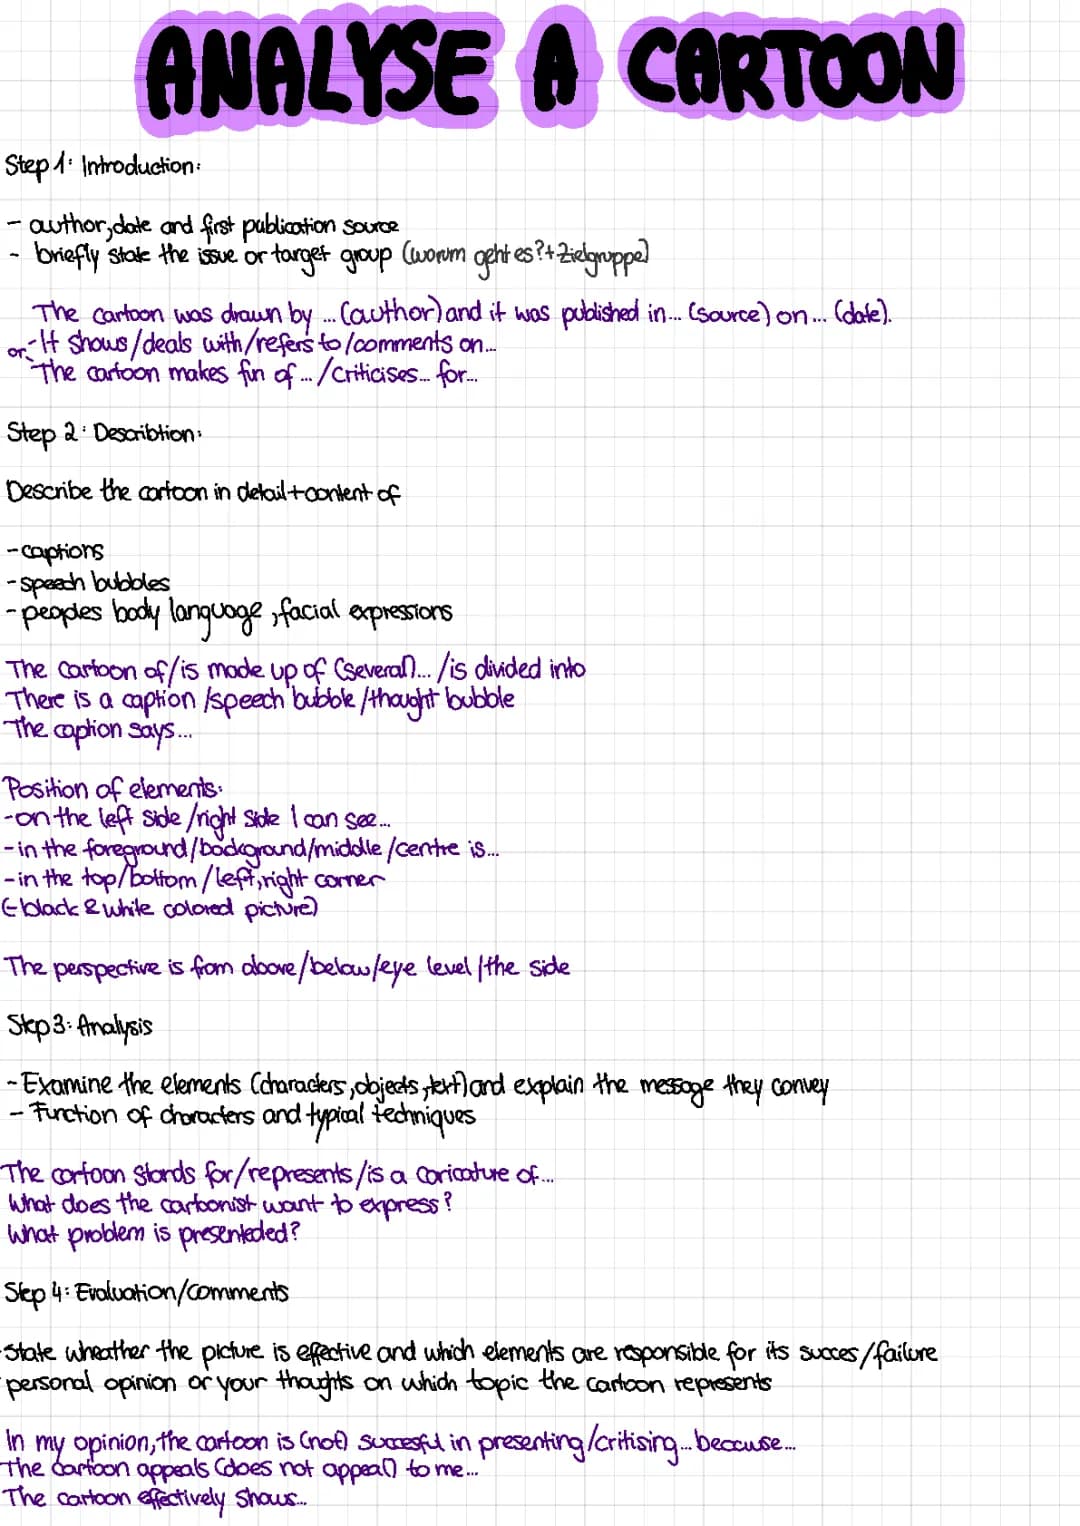 ANALYSE A CARTOON
Step 1: Introduction:
- author, date and first publication source
- briefly state the issue or target group (worum geht es? + Zielgruppe)
The cartoon was drawn by ... (author) and it was published in... (source) on ... (date).
or - It shows/deals with/refers to/comments on...
The cartoon makes fun of .../criticises... for...
Step 2: Describtion:
Describe the cartoon in detail + content of
- captions
- speech bubbles
- peoples body language, facial expressions
The cartoon of/is made up of (several)... /is divided into
There is a caption /speech bubble /thought bubble
The caption says...
Position of elements:
- on the left side /right side I can see...
- in the foreground/background/middle/centre is...
- in the top/bottom/left, right corner
(- black & white colored picture)
The perspective is from above/below/eye level/the side
Step 3: Analysis
- Examine the elements (characters, objects, text) and explain the message they convey
- Function of characters and typical techniques
The cartoon stands for/represents/is a caricature of...
What does the cartoonist want to express?
What problem is presenteded?
Step 4: Evaluation/comments
-State wheather the picture is effective and which elements are responsible for its succes/failure
personal opinion or your thoughts on which topic the cartoon represents
In my opinion, the cartoon is (not) succesful in presenting/critising... because...
The cartoon appeals (does not appeal) to me...
The cartoon effectively shows...